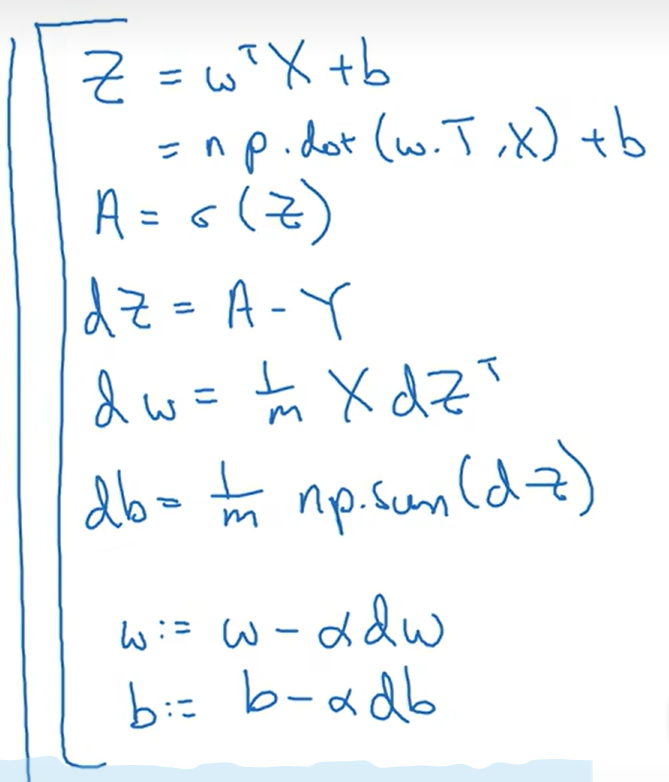 Z = wᵀX + b
= np.dot(w.T, X) + b
A = σ(Z)
dZ = A - Y
dw = 1/m X dZᵀ
db = 1/m np.sum(dz)
w := w - αdw
b := b - αdb